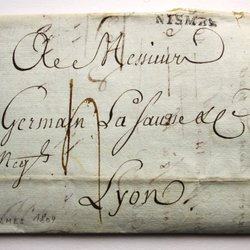 NISMES
A Messieurs
Germain La Sausse & C.
Neg.ts
Lyon